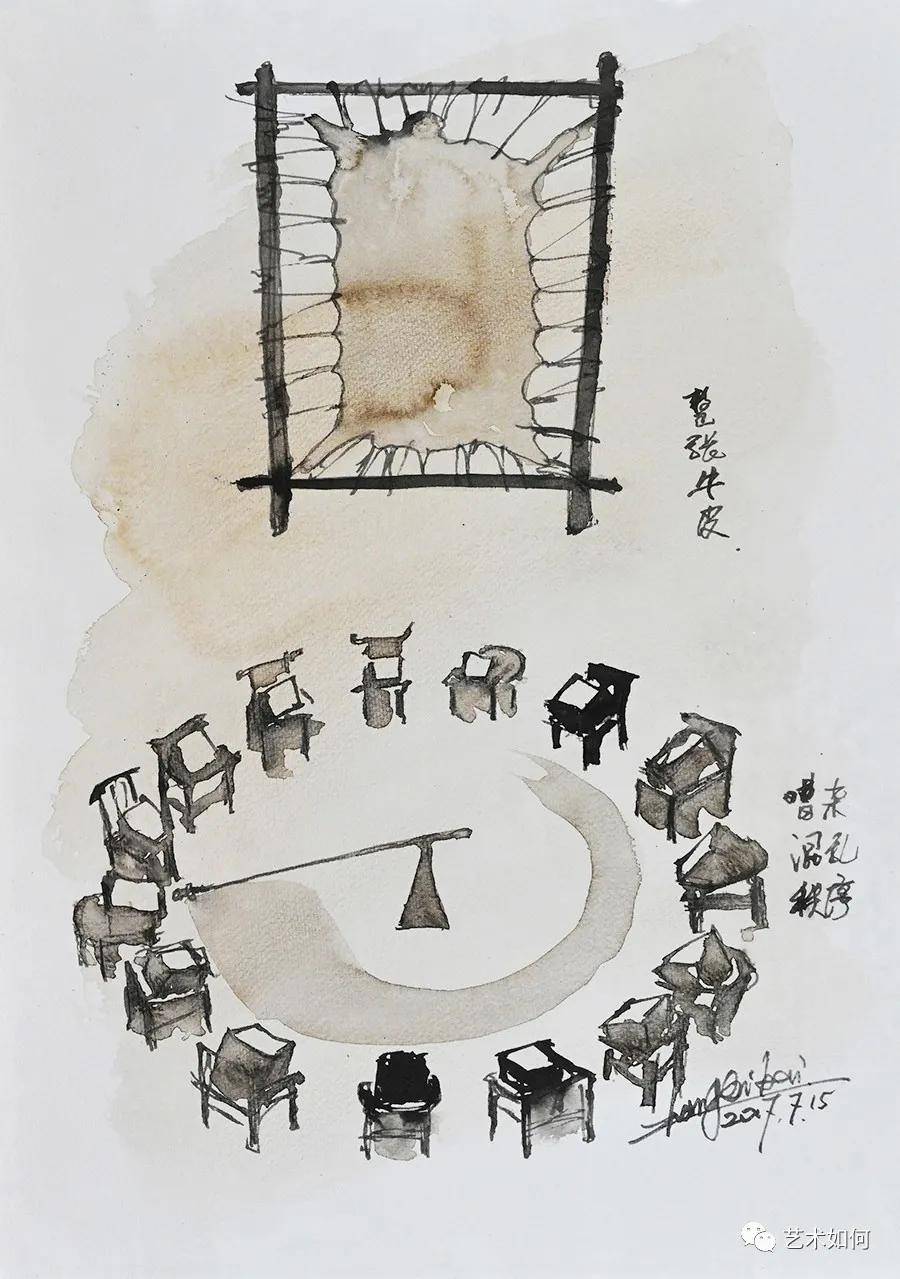 整张牛皮
嘈杂
混乱
秩序
2017.7.15
艺术如何